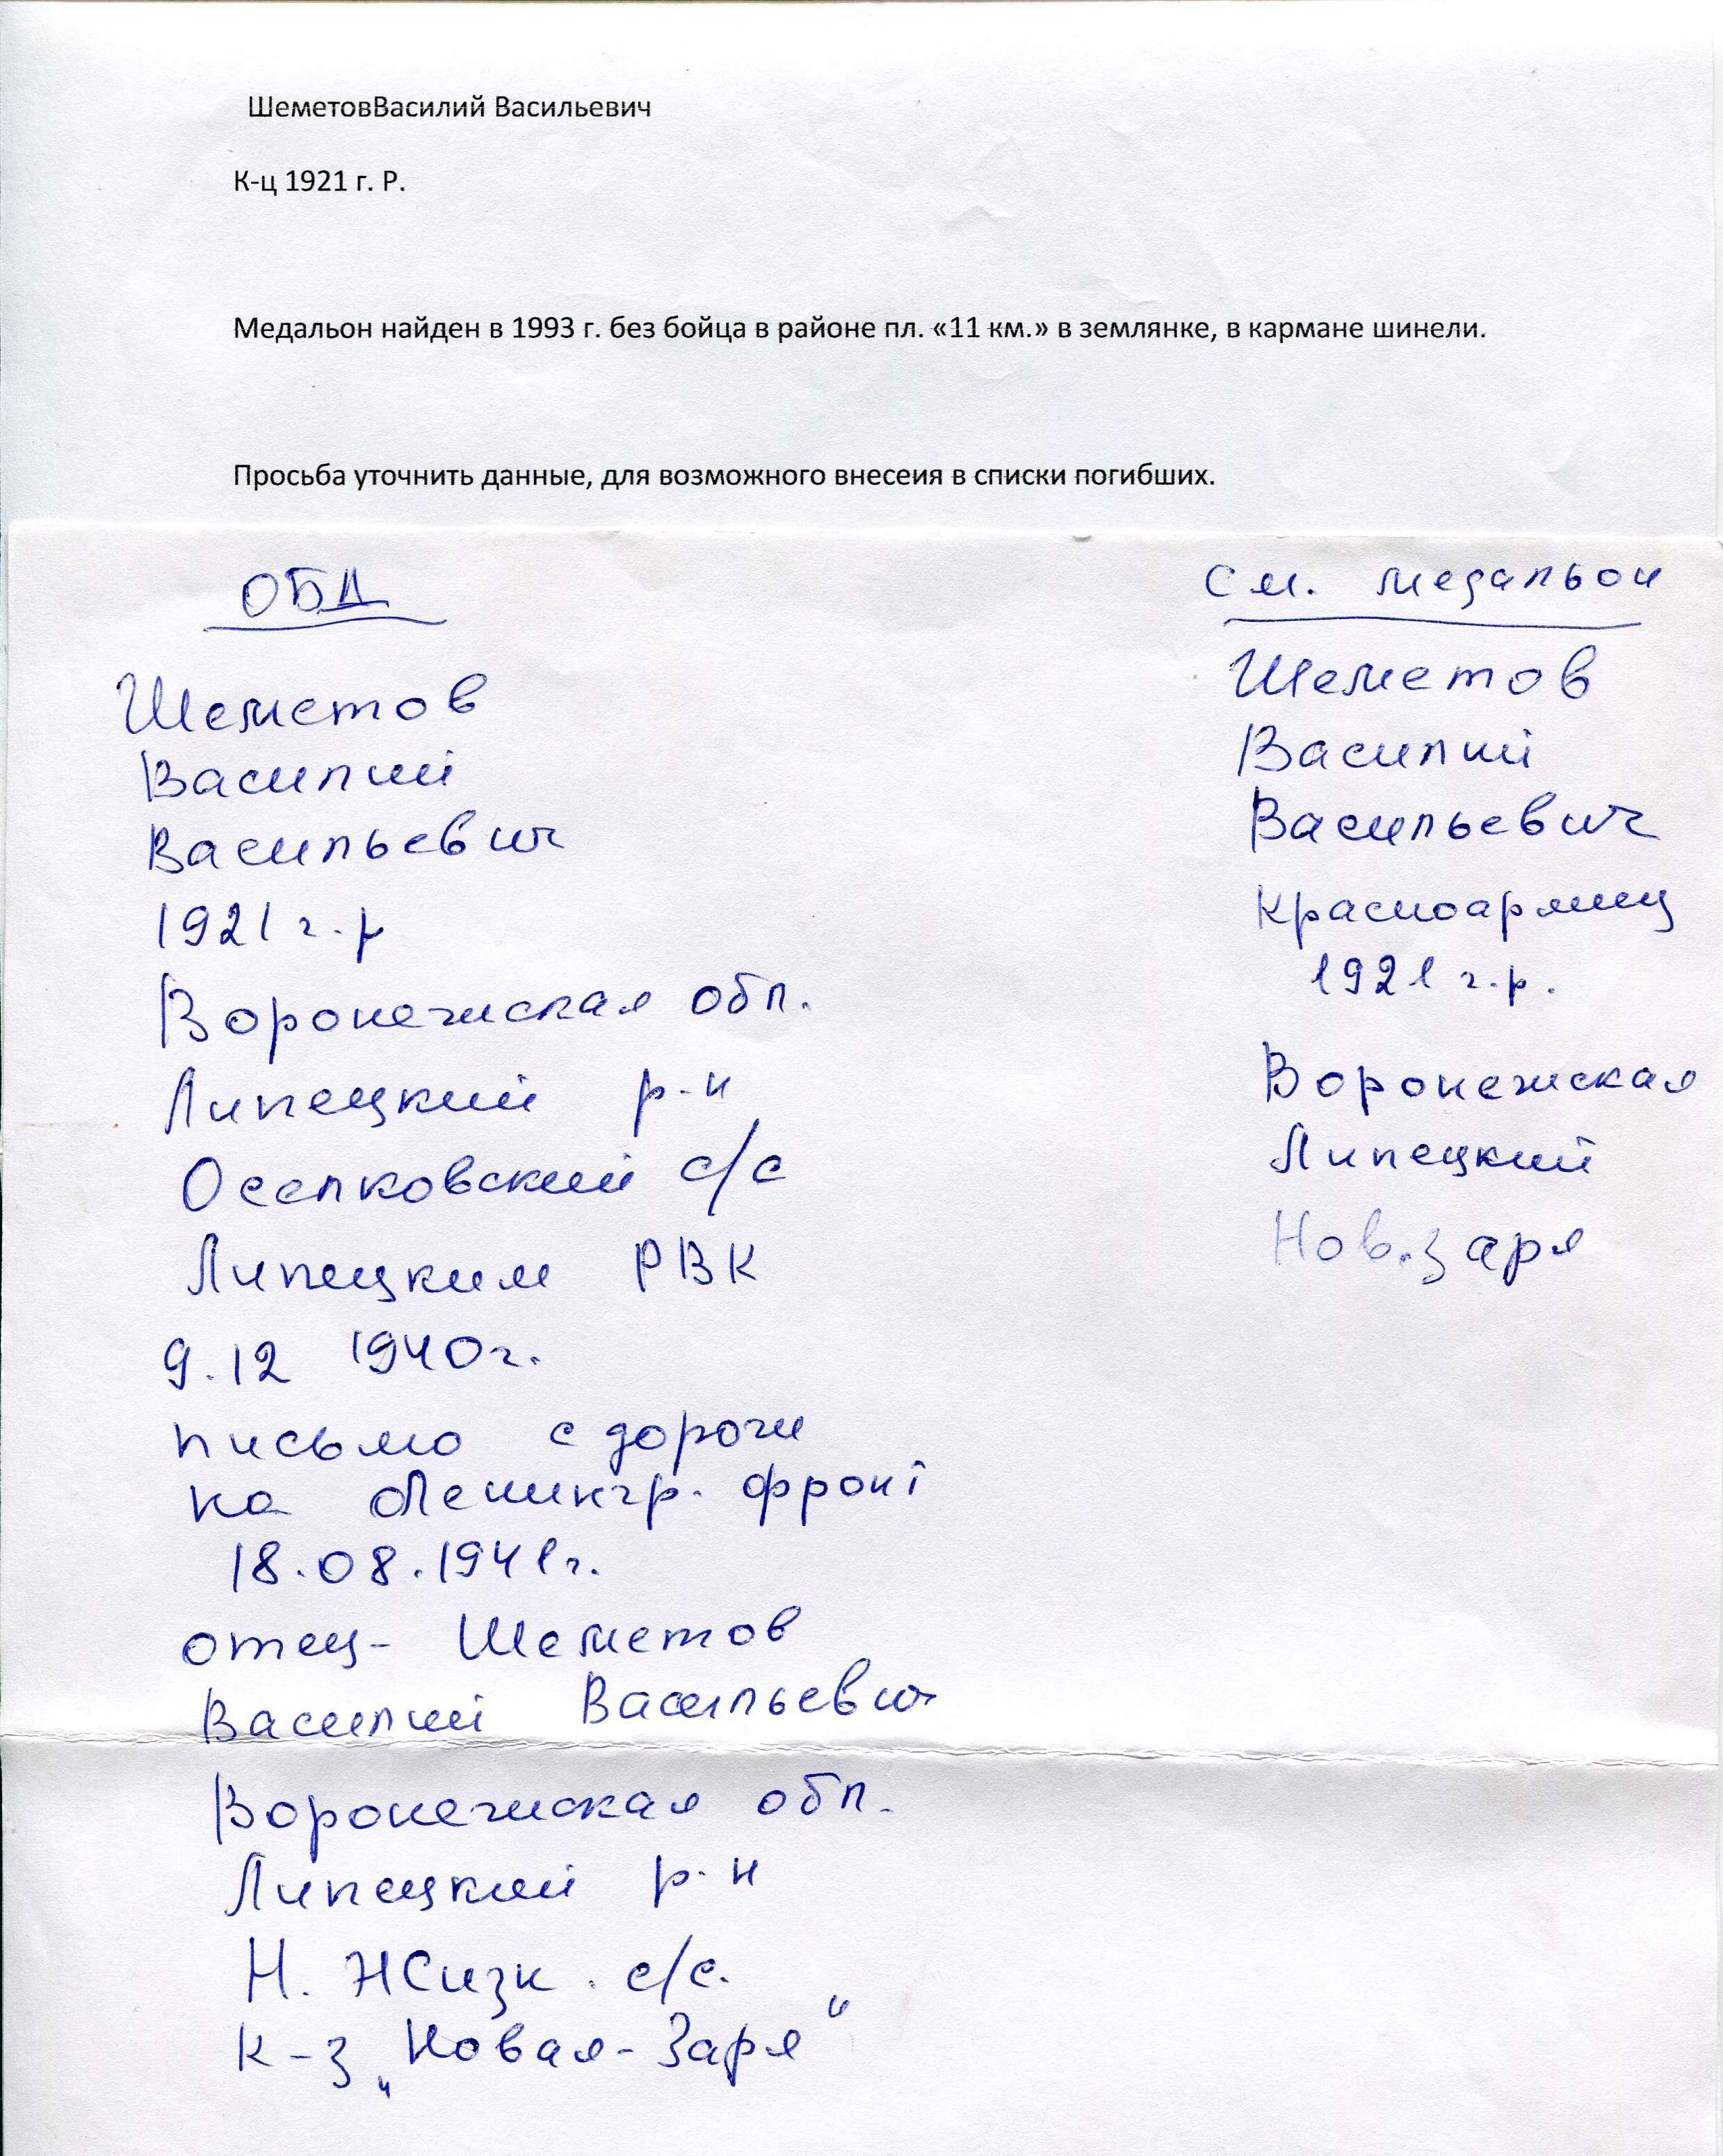 ШеметовВасилий Васильевич
К-ц 1921 г. Р.
Медальон найден в 1993 г. без бойца в районе пл. «11 км.» в землянке, в кармане шинели.
Просьба уточнить данные, для возможного внесеия в списки погибших.
ОБД
Шеметов
Василий
Васильевич
1921 г.р
Воронежская обл.
Липецкий р-н
Оселковский с/с
Липецким РВК
9.12 1940г.
письмо с дороги
на Ленингр. фронт
18.08.1941г.
отец- Шеметов
Василий Васильевич
Воронежская обл.
Липецкий р-н
Н. Жизн. с/с.
К-з „Новая-Заря"
см. медальон
Шеметов
Василий
Васильевич
Красноармец
1921 г.р.
Воронежская
Липецкий
Нов.заря